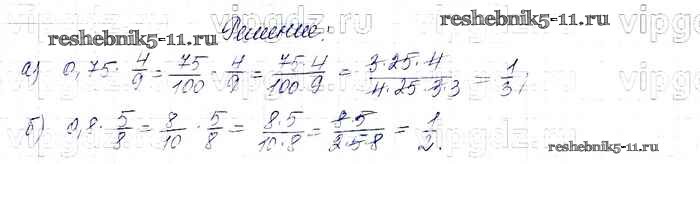 reshebnik5-11.ru Решение. reshebnik5-11.ru
а) 0,75 · 4/9 = 75/100 · 4/9 = 75·4/100·9 = 3·25·4/4·25·3·3 = 1/3;
б) 0,8 · 5/8 = 8/10 · 5/8 = 8·5/10·8 = 8·5/2·5·8 = 1/2.
reshebnik5-11.ru